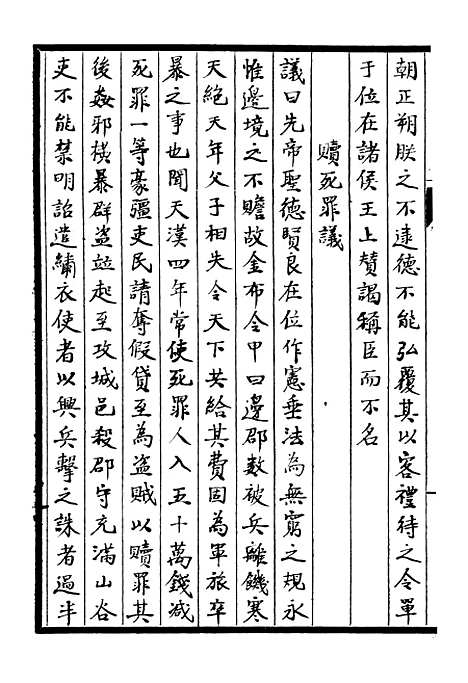 朝正朔朕之不逮德不能弘覆其以客禮待之令單
于位在諸侯王上贊謁稱臣而不名
贖死罪議
議曰先帝聖德賢良在位作憲垂法為無窮之規永
惟邊境之不贍故金布令甲曰邊郡數被兵離饑寒
夭絕天年父子相失令天下共給其費固為軍旅卒
暴之事也聞天漢四年常使死罪人入五十萬錢減
死罪一等豪彊吏民請奪假貸至為盜賊以贖罪其
後姦邪橫暴群盜竝起至攻城邑殺郡守充滿山谷
吏不能禁明詔遣繡衣使者以興兵擊之誅者過半